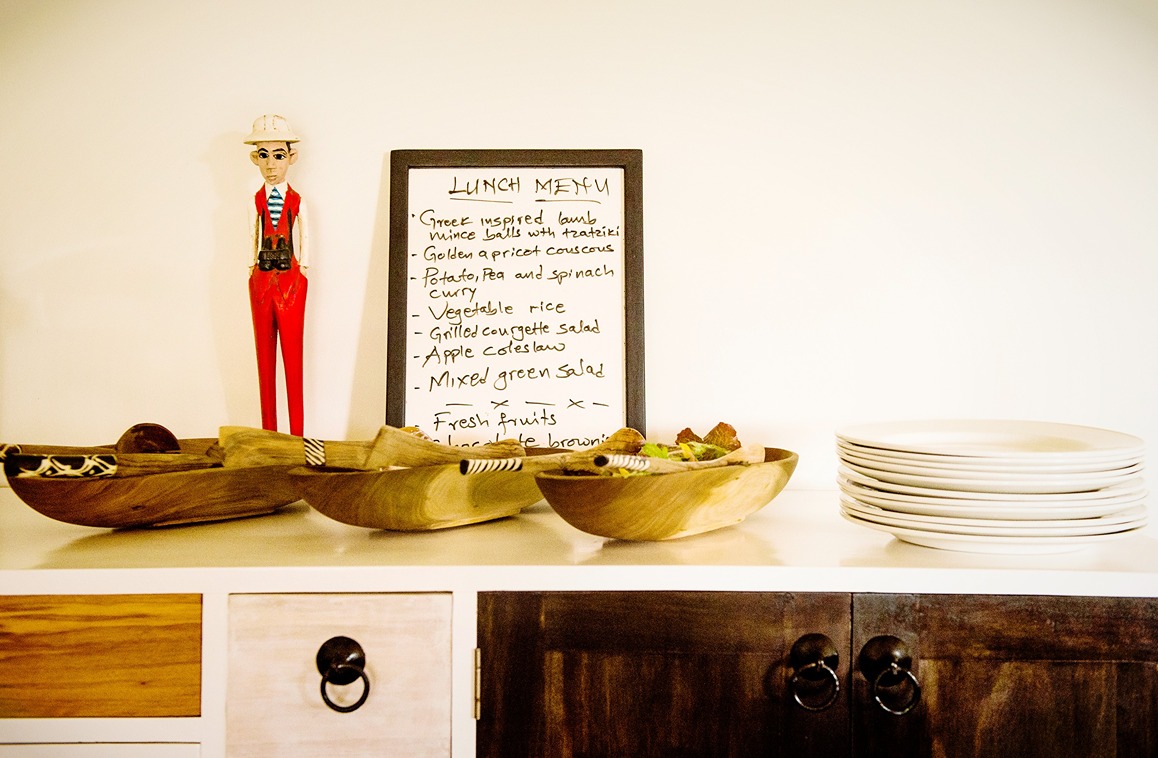 LUNCH MENU
· Greek inspired lamb
mince balls wth tzatziki
- Golden apricot couscous
- Potato, Pea and spinach
curry
- Vegetable rice
- Grilled courgette salad
- Apple coleslaw
- Mixed green salad
— x — x —
Fresh fruits